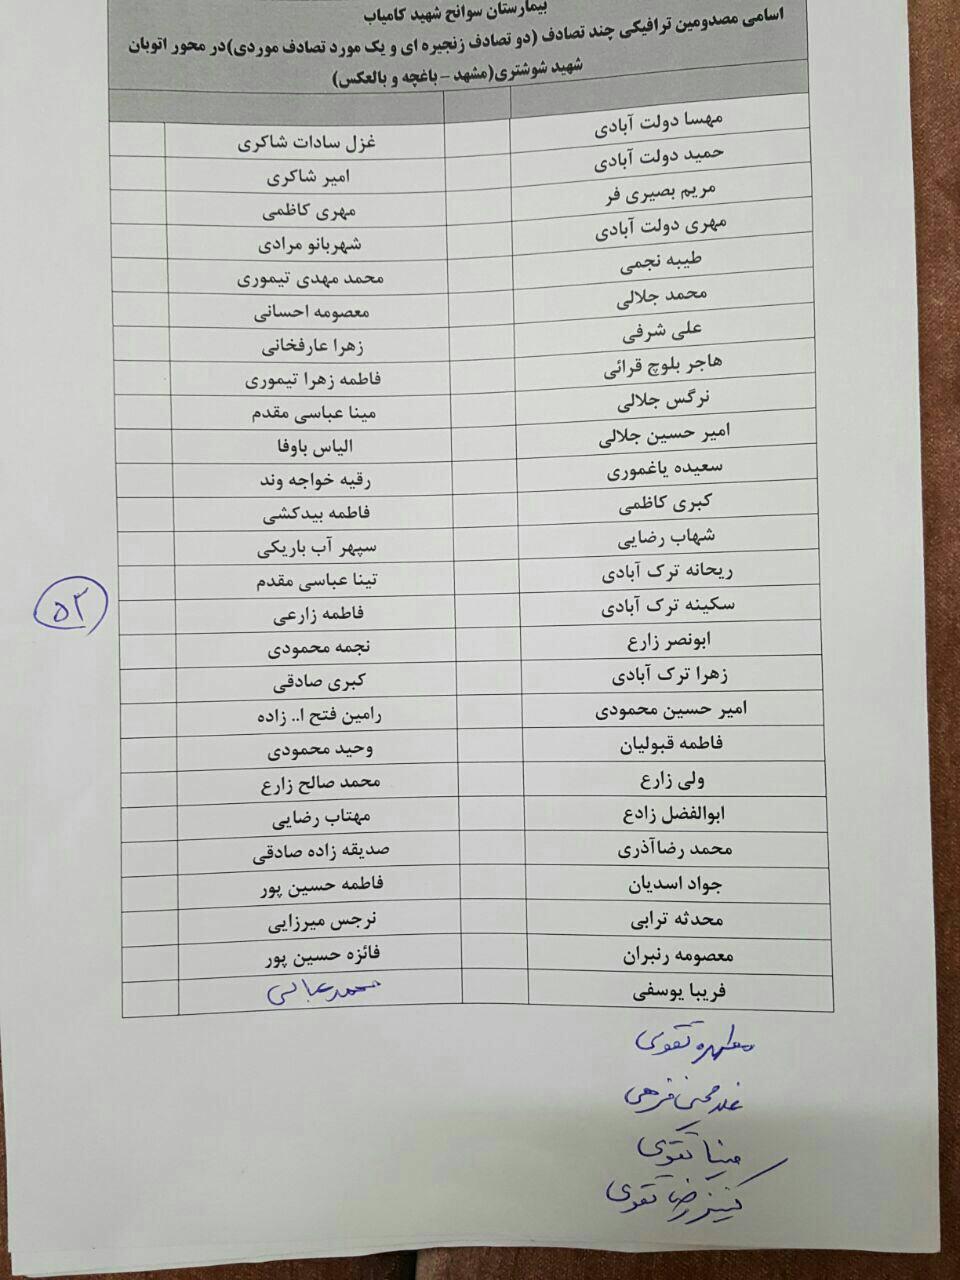 بیمارستان سوانح شهید کامیاب
اسامی مصدومین ترافیکی چند تصادف (دو تصادف زنجیره ای و یک مورد تصادف موردی)در محور اتوبان
شهید شوشتری(مشهد – باغچه و بالعکس)
مهسا دولت آبادی غزل سادات شاکری
حمید دولت آبادی امیر شاکری
مریم بصیری فر مهری کاظمی
مهری دولت آبادی شهربانو مرادی
طیبه نجمی محمد مهدی تیموری
محمد جلالی معصومه احسانی
علی شرفی زهرا عارفخانی
هاجر بلوچ قرائی فاطمه زهرا تیموری
نرگس جلالی مینا عباسی مقدم
امیر حسین جلالی الیاس باوفا
سعیده یاغموری رقیه خواجه وند
کبری کاظمی فاطمه بیدکشی
شهاب رضایی سپهر آب باریکی
ریحانه ترک آبادی تینا عباسی مقدم
سکینه ترک آبادی فاطمه زارعی
ابونصر زارع نجمه محمودی
زهرا ترک آبادی کبری صادقی
امیر حسین محمودی رامین فتح ا.. زاده
فاطمه قبولیان وحید محمودی
ولی زارع محمد صالح زارع
ابوالفضل زادع مهتاب رضایی
محمد رضاآذری صدیقه زاده صادقی
جواد اسدیان فاطمه حسین پور
محدثه ترابی نرجس میرزایی
معصومه رنبران فائزه حسین پور
فریبا یوسفی محمد عباسی
۵۲
مطهره تقوی
مینا تقوی
کنیز رضا تقوی